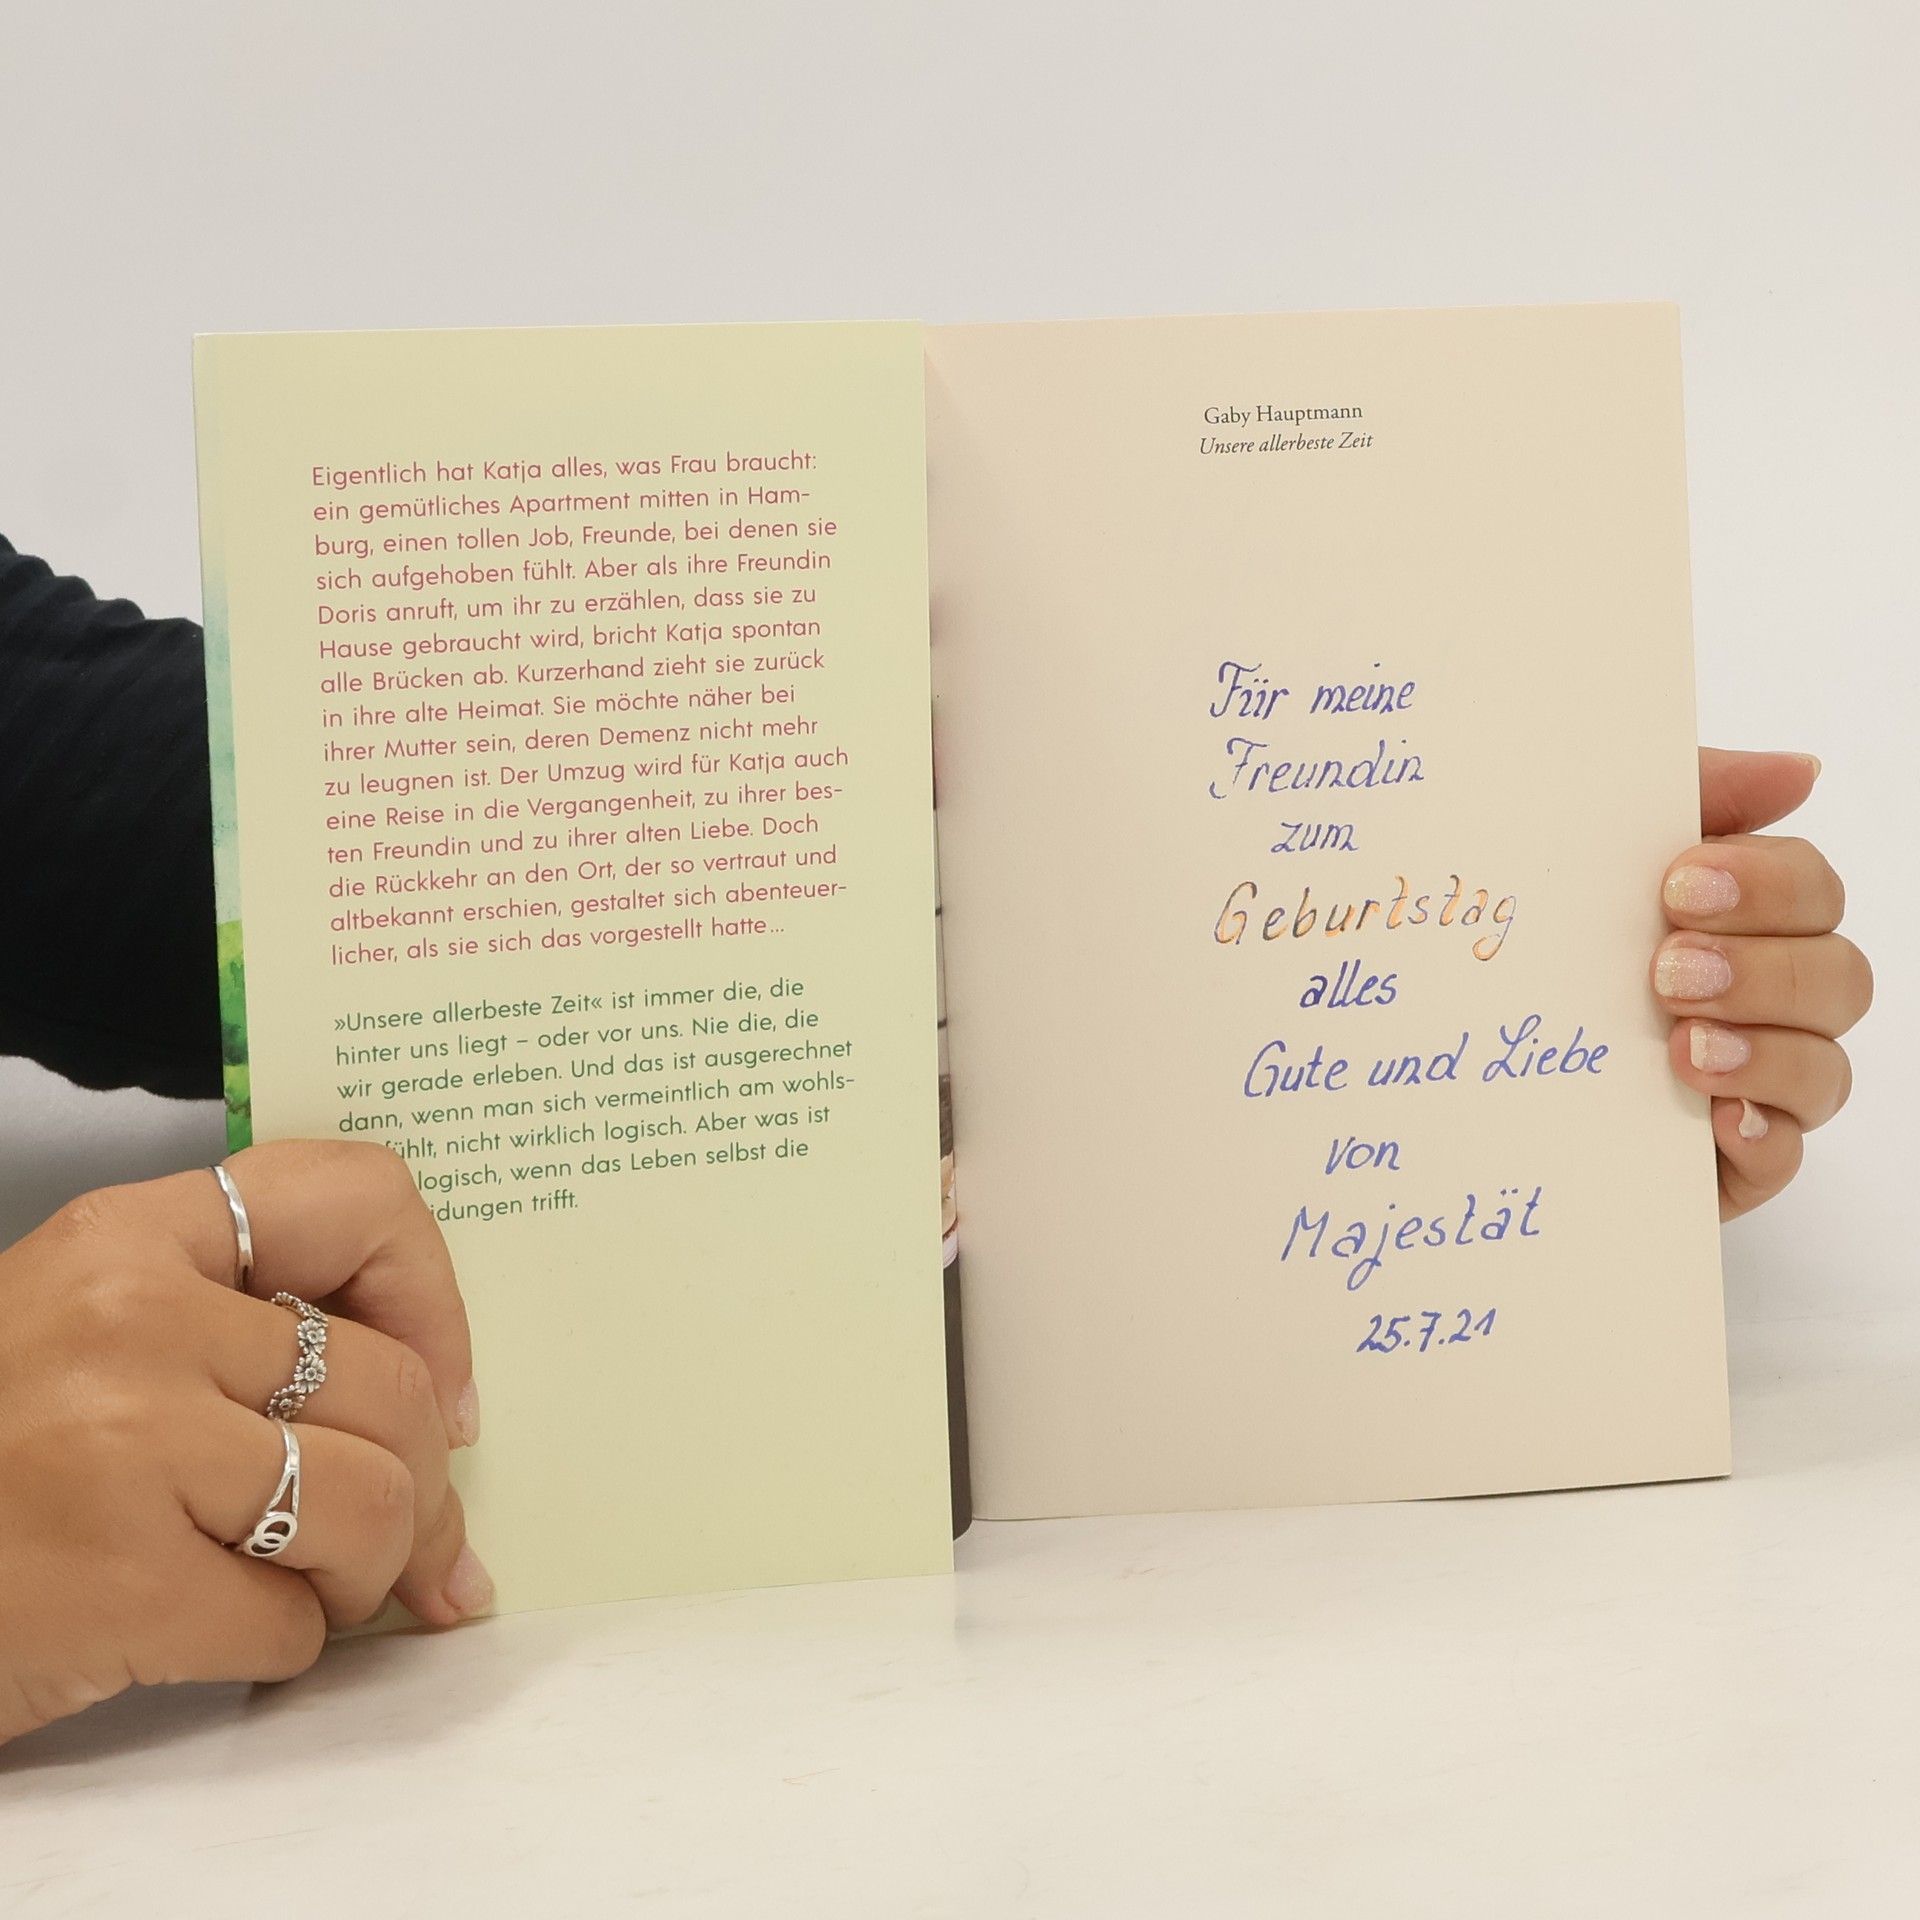 Eigentlich hat Katja alles, was Frau braucht:
ein gemütliches Apartment mitten in Ham-
burg, einen tollen Job, Freunde, bei denen sie
sich aufgehoben fühlt. Aber als ihre Freundin
Doris anruft, um ihr zu erzählen, dass sie zu
Hause gebraucht wird, bricht Katja spontan
alle Brücken ab. Kurzerhand zieht sie zurück
in ihre alte Heimat. Sie möchte näher bei
ihrer Mutter sein, deren Demenz nicht mehr
zu leugnen ist. Der Umzug wird für Katja auch
eine Reise in die Vergangenheit, zu ihrer bes-
ten Freundin und zu ihrer alten Liebe. Doch
die Rückkehr an den Ort, der so vertraut und
altbekannt erschien, gestaltet sich abenteuer-
licher, als sie sich das vorgestellt hatte...
»Unsere allerbeste Zeit« ist immer die, die
hinter uns liegt – oder vor uns. Nie die, die
wir gerade erleben. Und das ist ausgerechnet
dann, wenn man sich vermeintlich am wohls-
nicht wirklich logisch. Aber was ist
logisch, wenn das Leben selbst die
trifft.
Gaby Hauptmann
Unsere allerbeste Zeit
Für meine
Freundin
zum
Geburtstag
alles
Gute und Liebe
von
Majestät
25.7.21